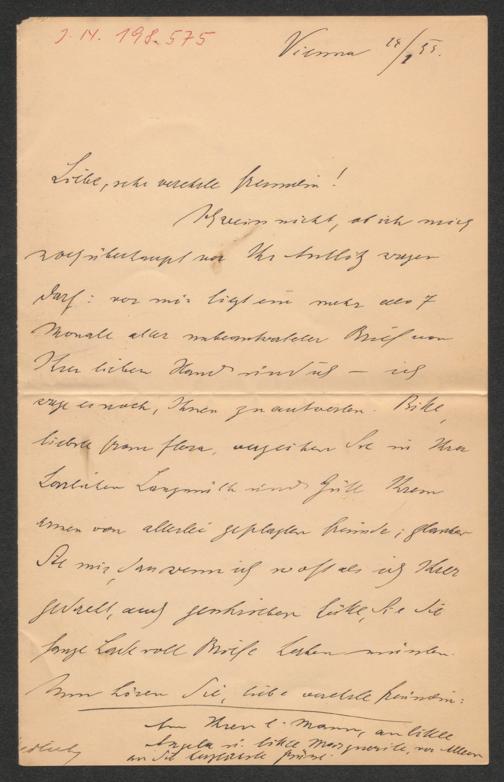 J. N. 198.575
Vienna 14/1 95.
Liebe, sehr verehrte Freundin!
Ich weiss nicht, ob ich mich
noch überhaupt vor Ihr Antlitz wagen
darf: vor mir liegt ein mehr als 7
Monate alter unbeantworteter Brief von
Ihrer lieben Hand und ich — ich
wage es noch, Ihnen zu antworten. Bitte,
liebste Frau Flora, verzeihen Sie in Ihrer
Langmuth und Güte Ihrem
armen von allerlei geplagten Freunde; glauben
Sie mir, dass wenn ich so oft als ich Ihrer
gedacht, auch geschrieben hätte, Sie die
ganze Lade voll Briefe haben müssten.
Nun hören Sie, liebe verehrte Freundin:
An Ihren l. Mann, an little
Angela u. little Marguerite, vor Allem
an Sie Grüsse.